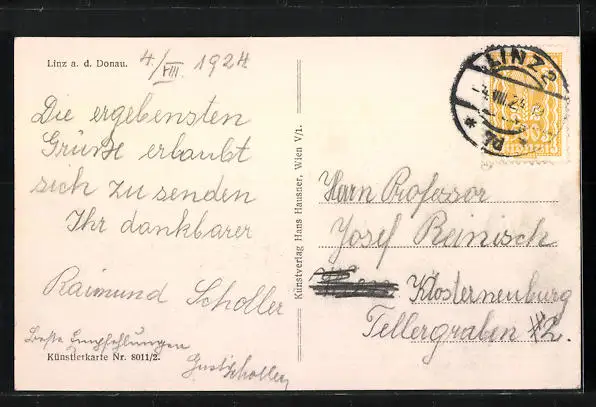 Linz a. d. Donau.
4/VIII. 1924
Die ergebensten
Grüsse erlaubt
sich zu senden
Ihr dankbarer
Raimund Scholler
Beste Empfehlungen
Gusti Scholler
Künstlerkarte Nr. 8011/2.
Künstverlag Hans Hausner, Wien V/1.
LINZ 2
-4.VIII.24
Herrn Professor
Josef Reinisch
Klosterneuburg
Tellergraben #2.